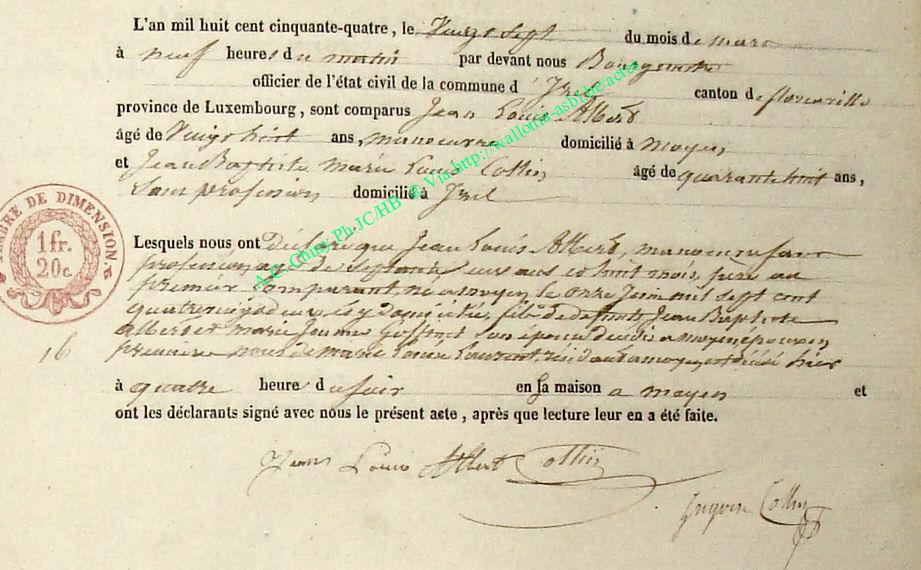 L'an mil huit cent cinquante-quatre, le Vingt sept du mois de mars
à neuf heures du matin par devant nous
officier de l'état civil de la commune d'Izel canton de florenville
province de Luxembourg, sont comparus Jean Louis Albert
âgé de Vingt huit ans, manoeuvre domicilié à moyen
et Jean Baptiste marie Louis Collin âgé de quarante huit ans,
sans profession domicilié à Izel
TIMBRE DE DIMENSION
1 fr.
20 c.
Lesquels nous ont déclaré que Jean Louis Albert, manoeuvre
profession age de septante un ans et huit mois, pere au
premier comparant, né a moyen le onze Juin mil sept cent
quatre vingt deux, y domicilié, fils de defunts Jean Baptiste
albert et marie Jeanne son épouse décédés a moyen époux en
premiere noces de marie Louise Laurent a moyen est décédé hier
16
à quatre heure du soir en sa maison a moyen et
ont les déclarants signé avec nous le présent acte, après que lecture leur en a été faite.
Jean Louis Albert Collin
Collin
Act. Chiny Ph.JC/HB © Via http://wallonia-asbl.be/actes